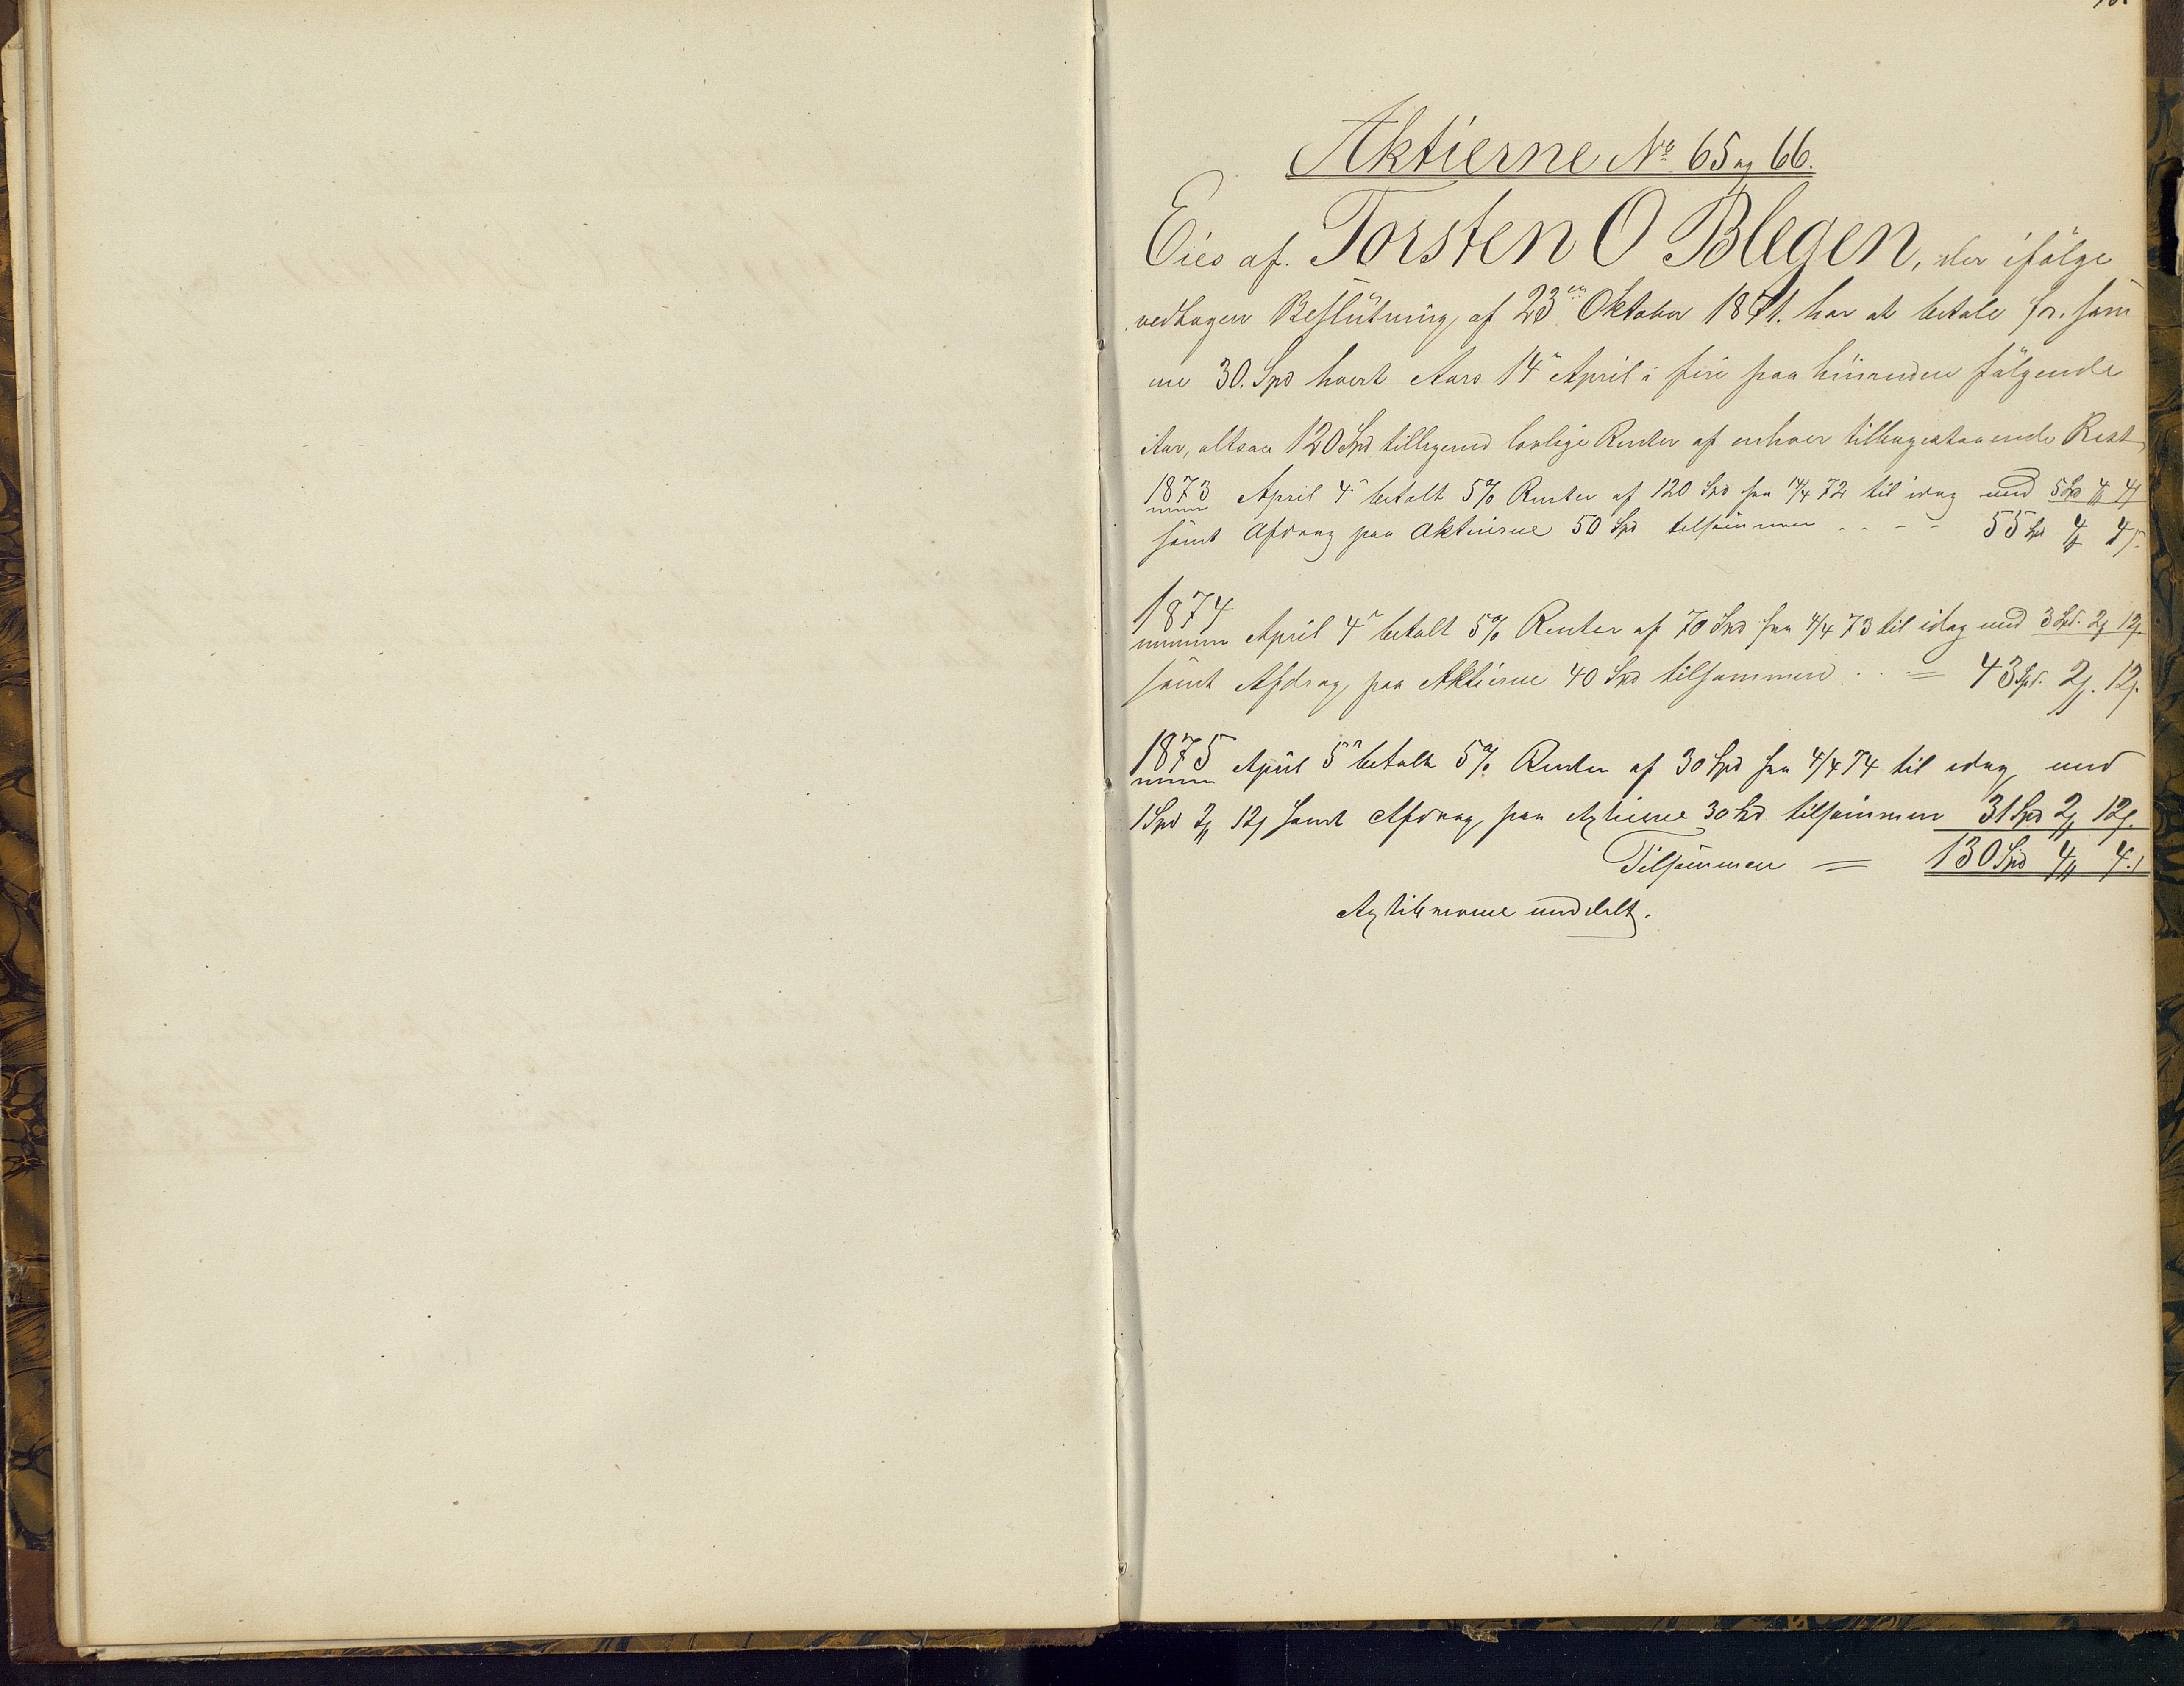 Aktierne No 65 og 66.
Eies af Torsten O Blegen, der ifølge
vedtagen Beslutning af 23de Oktober 1871. har at betale for sam
me 30. Spd hvert Aars 14de April i fire paa hinanden følgende
Aar, altsaa 120 Spd tilligemed lovlige Renter af enhver tilbagestaaende Rest
1873 April 4de betalt 5% Renter af 120 Spd fra 14/4 72 til idag med 5 Spd 4 4
samt Afdrag paa Aktierne 50 Spd tilsammen - - - 55 Spd 4 4
1874 April 4de betalt 5% Renter af 70 Spd fra 4/4 73 til idag med 3 Spd. 2 12
samt Afdrag paa Aktierne 40 Spd tilsammen . . = 43 Spd. 2. 12
1875 April 5te betalt 5% Renter af 30 Spd fra 4/4 74 til idag med
1 Spd 2 12 samt Afdrag paa Aktierne 30 Spd tilsammen 31 Spd 2 12
Tilsammen = 130 Spd 4 4
meddelt.